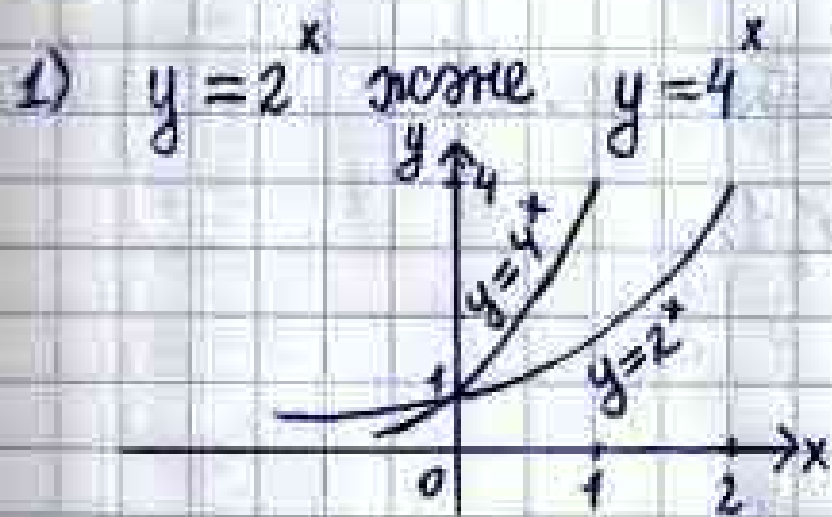 1) y = 2^x және y = 4^x
y
4
y = 4^x
1
y = 2^x
0 1 2 x